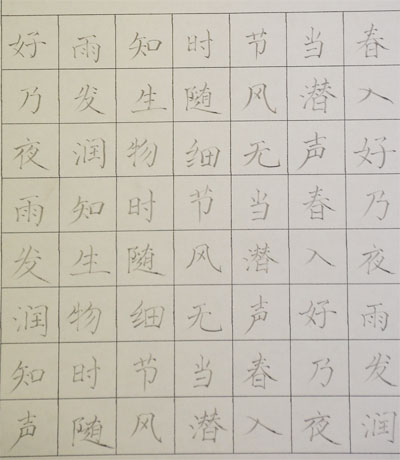 好雨知时节当春
乃发生随风潜入
夜润物细无声好
雨知时节当春乃
发生随风潜入夜
润物细无声好雨
知时节当春乃发
声随风潜入夜润